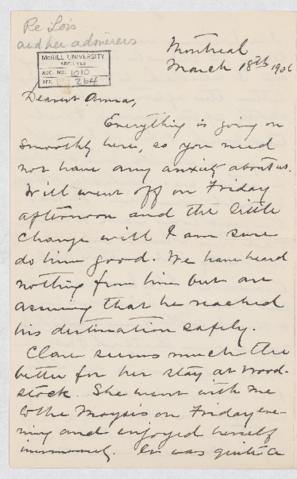 Re Lois
and her admirers
McGILL UNIVERSITY
ARCHIVES
ACC. NO. 1010
REF. 264
Montreal
March 18th 1906
Dearest Anna,
Everything is going on
smoothly here, so you need
not have any anxiety about us.
Will went off on Friday
afternoon and the little
change will I am sure
do him good. We have heard
nothing from him but are
assuming that he reached
his destination safely.
Clare seems much the
better for her stay at Wood-
stock. She went with me
to the Moyses on Friday eve-
ning and enjoyed herself
immensely. It was quite a